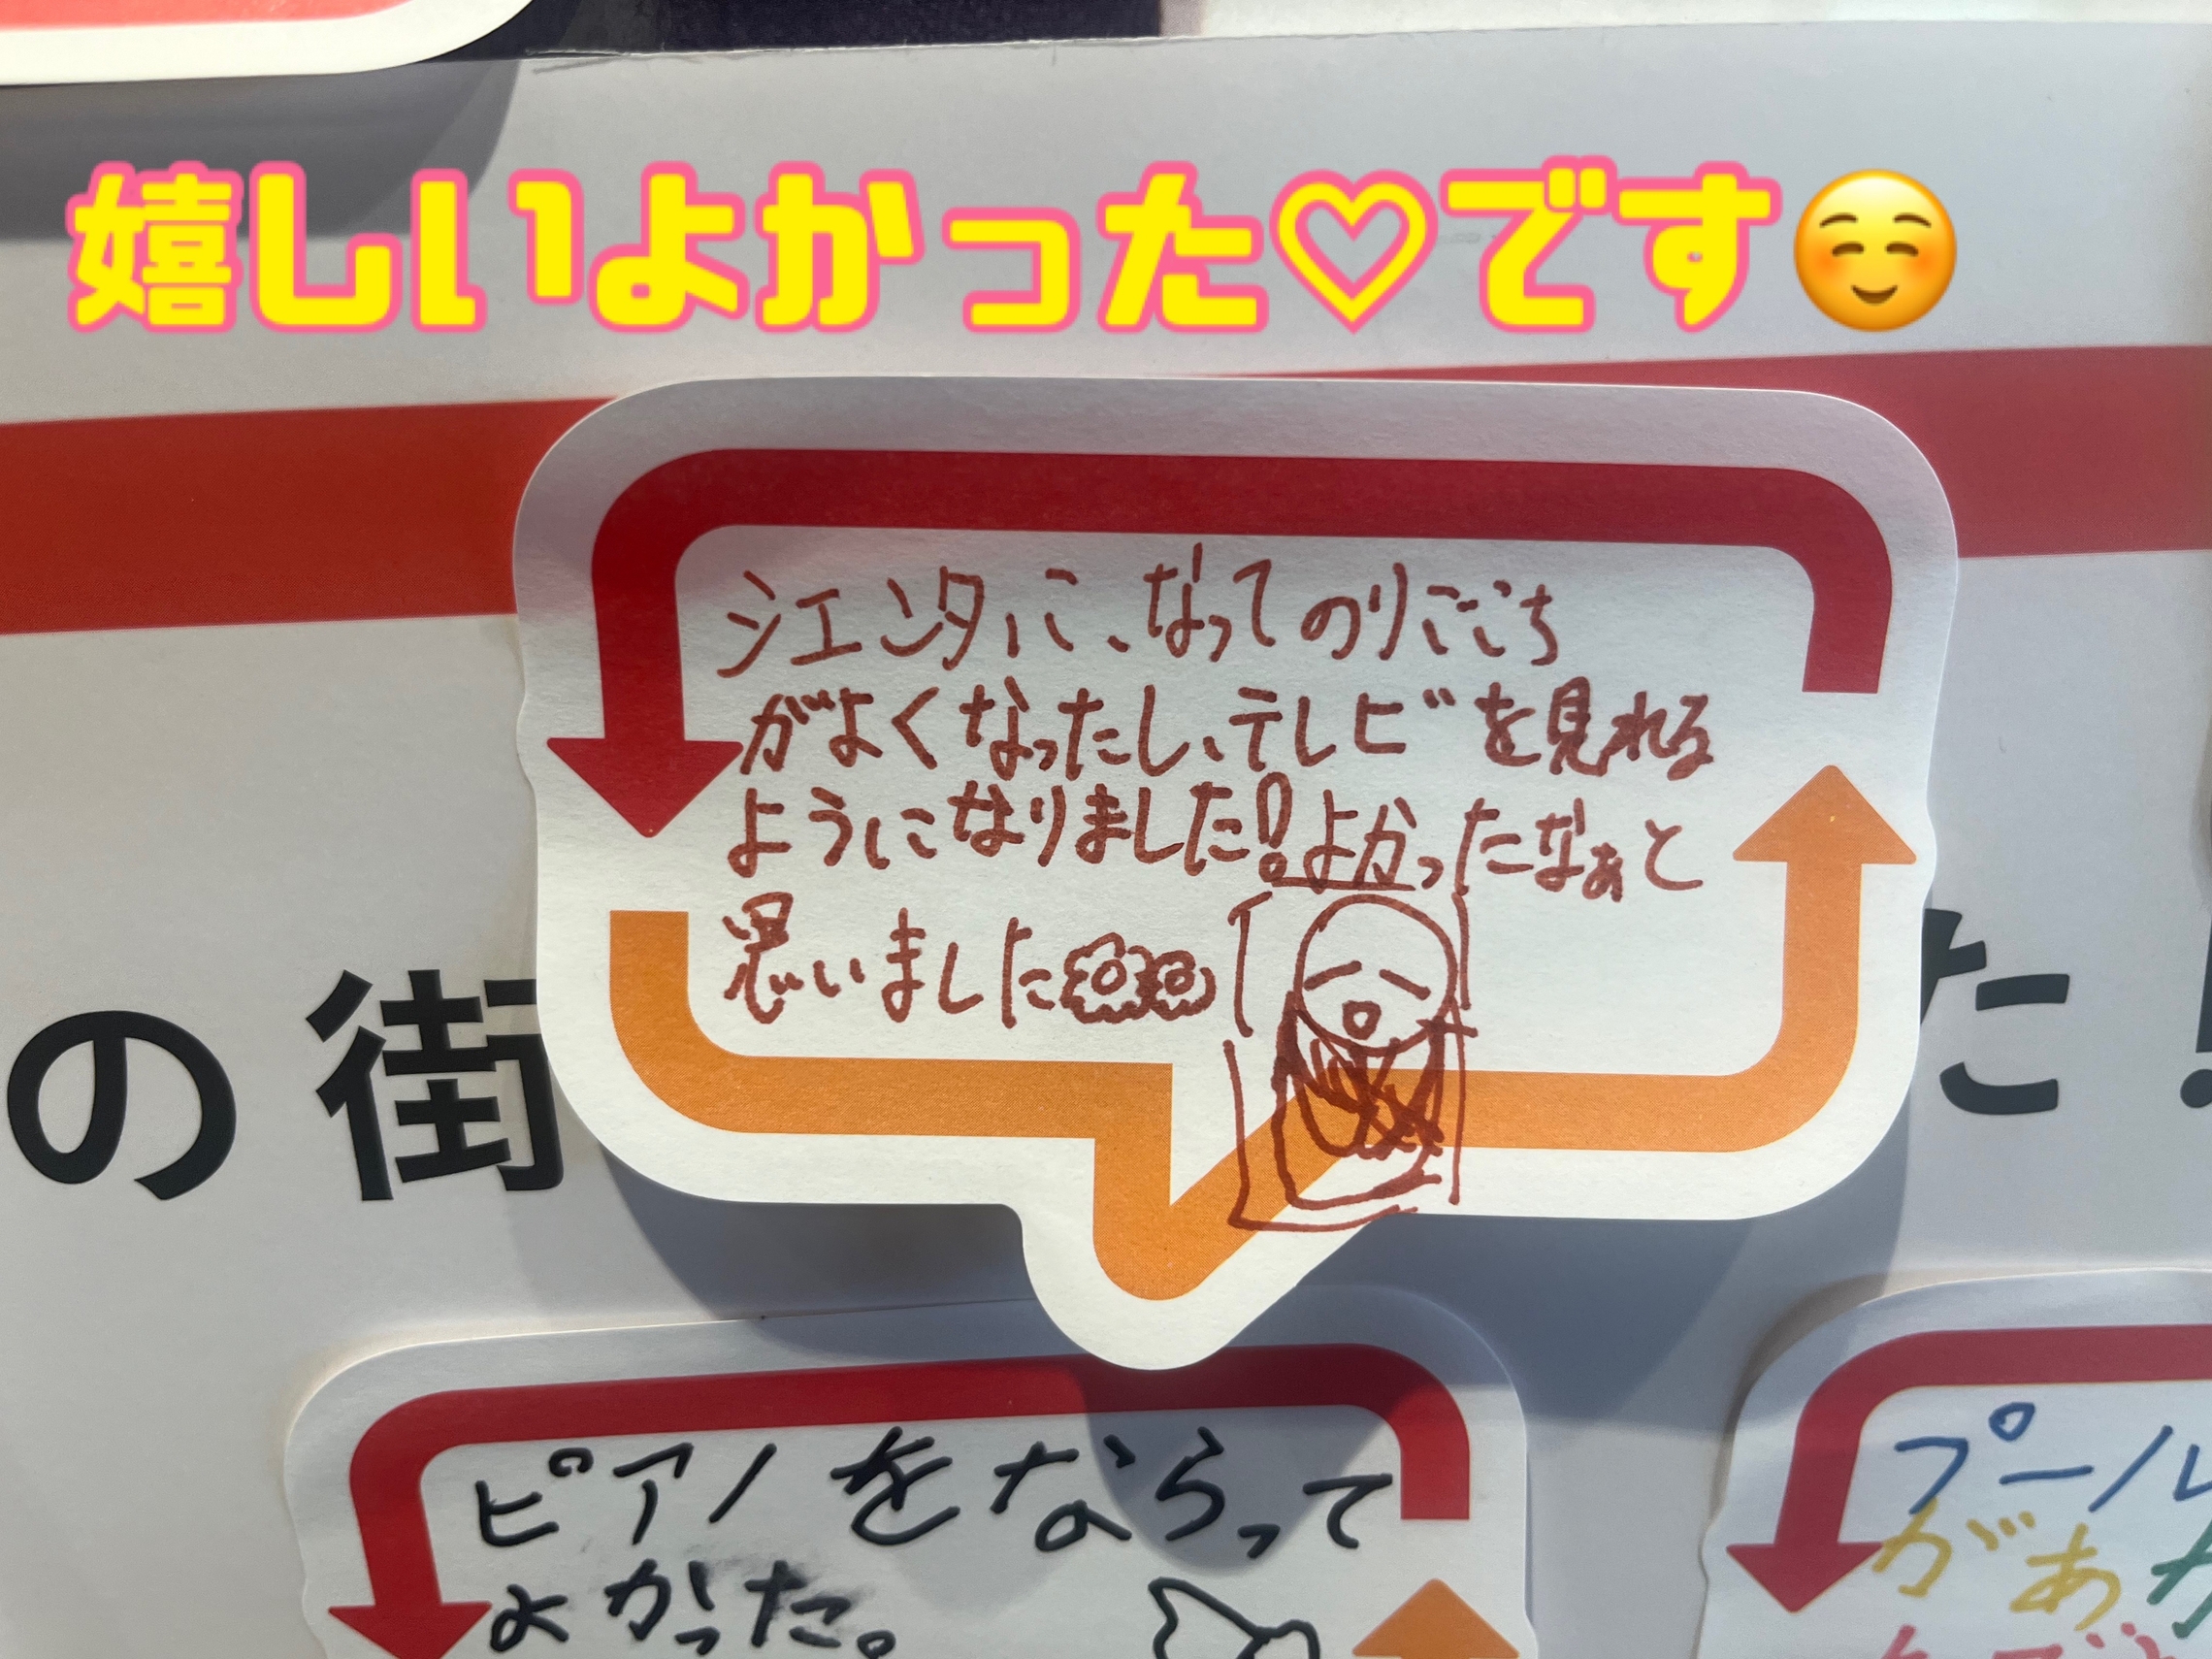 嬉しいよかった♡です☺️
シエンタに、なってのりごこち
がよくなったし、テレビを見れる
ようになりました!よかったなぁと
思いました
の街
た!
ピアノをならって
よかった。
プール
があ